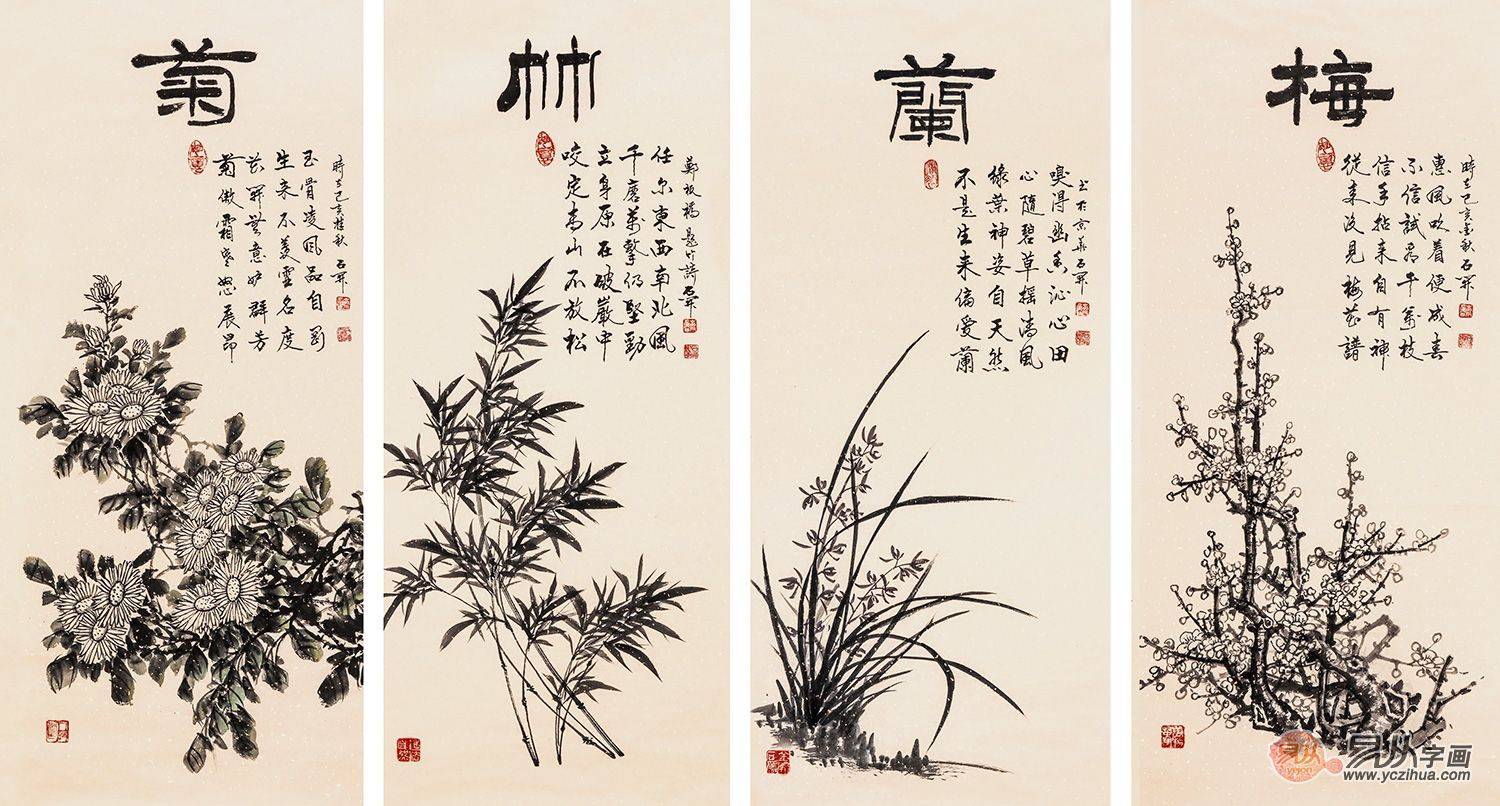 梅
從来没見梅花譜
信手拈来自有神
不信試看千萬枝
惠風吹着便成春
時在己亥金秋石開
蘭
不是生来偏愛蘭
綠葉神姿自天然
心隨碧草摇清風
嗅得幽香沁心田
書於京華石開
竹
咬定高山不放松
立身原在破巖中
千磨萬擊仍堅勁
任尔東西南北風
鄭板橋題竹詩石開
菊
菊傲霜寒怒展昂
花開無意妒群芳
生来不羡虚名度
玉骨凌風品自剛
時在己亥桂秋石開
易从字画
www.yczihua.com